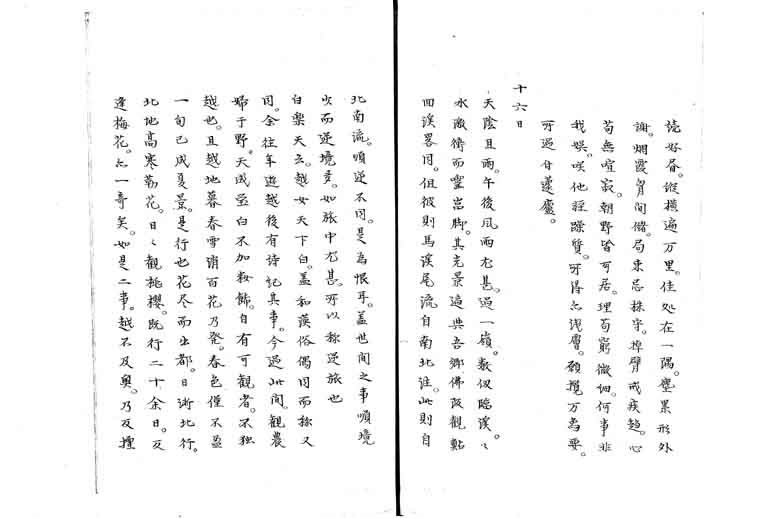 境好層。縱横遍万里。佳処在一隅。塵累形外
謝。烟霞胷間儲。局束忌株守。掉臂戒疾趍。心
苟無喧寂。朝野皆可居。理苟窮微細。何事非
我娯。咲他輕躁質。所得亦浅膚。願攬万為要。
所過廿蘧廬。
十六日
天陰且雨。午後風雨尤甚。過一嶺。数仭臨溪。々
水激𢷋而齧岩脚。其光景逼典吾郷佛阪觀點
四溪畧同。但彼則馬溪尾流。自南北注。此則自
北南流。順逆不同。是為恨耳。盖世間之事。順境
少而逆境多。如旅中尤甚。所以称逆旅也
白樂天云。越女天下白。盖和漢俗偶同而称又
同。余往年遊越後。有詩記其事。今過此間。觀農
婦于野。天成瑩白。不加粉飾。自有可觀者。不独
越也。且越地暮春雪消。百花乃発。春色僅不盈
一旬已成夏景。是行也。花尽而出都。日漸北行。
北地高寒勒花。日々觀桃櫻。既行二十余日。又
逢梅花。亦一奇矣。如是二事。越不及奥。乃反擅